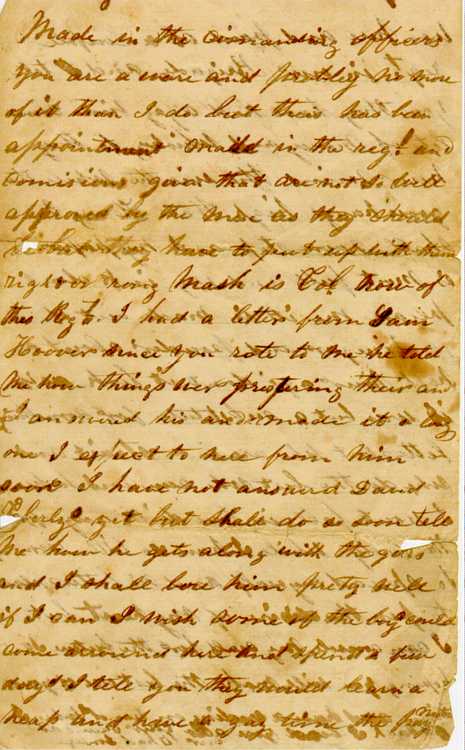 Made in the comanding officers
you are a ware and probly no more
of it than I do but their has been
appointment maid in the regt and
comisions given that are not so well
approved by the men as they should
have to put up with them
right or rong Mash is Col. now of
this Regt. I had a letter from Sam
Hoover since you rote to me he told
me how things wer prospering their and
I answred his and made it a big
one I expect to here from him
soon I have not answerd David
yet but shall do so soon tell
me how he gets along with the gals
and I shall bore him pretty well
if I can I wish some of the boys could
come arround here and spend a few
days I tell you they would learn a
heap and have a gay time the